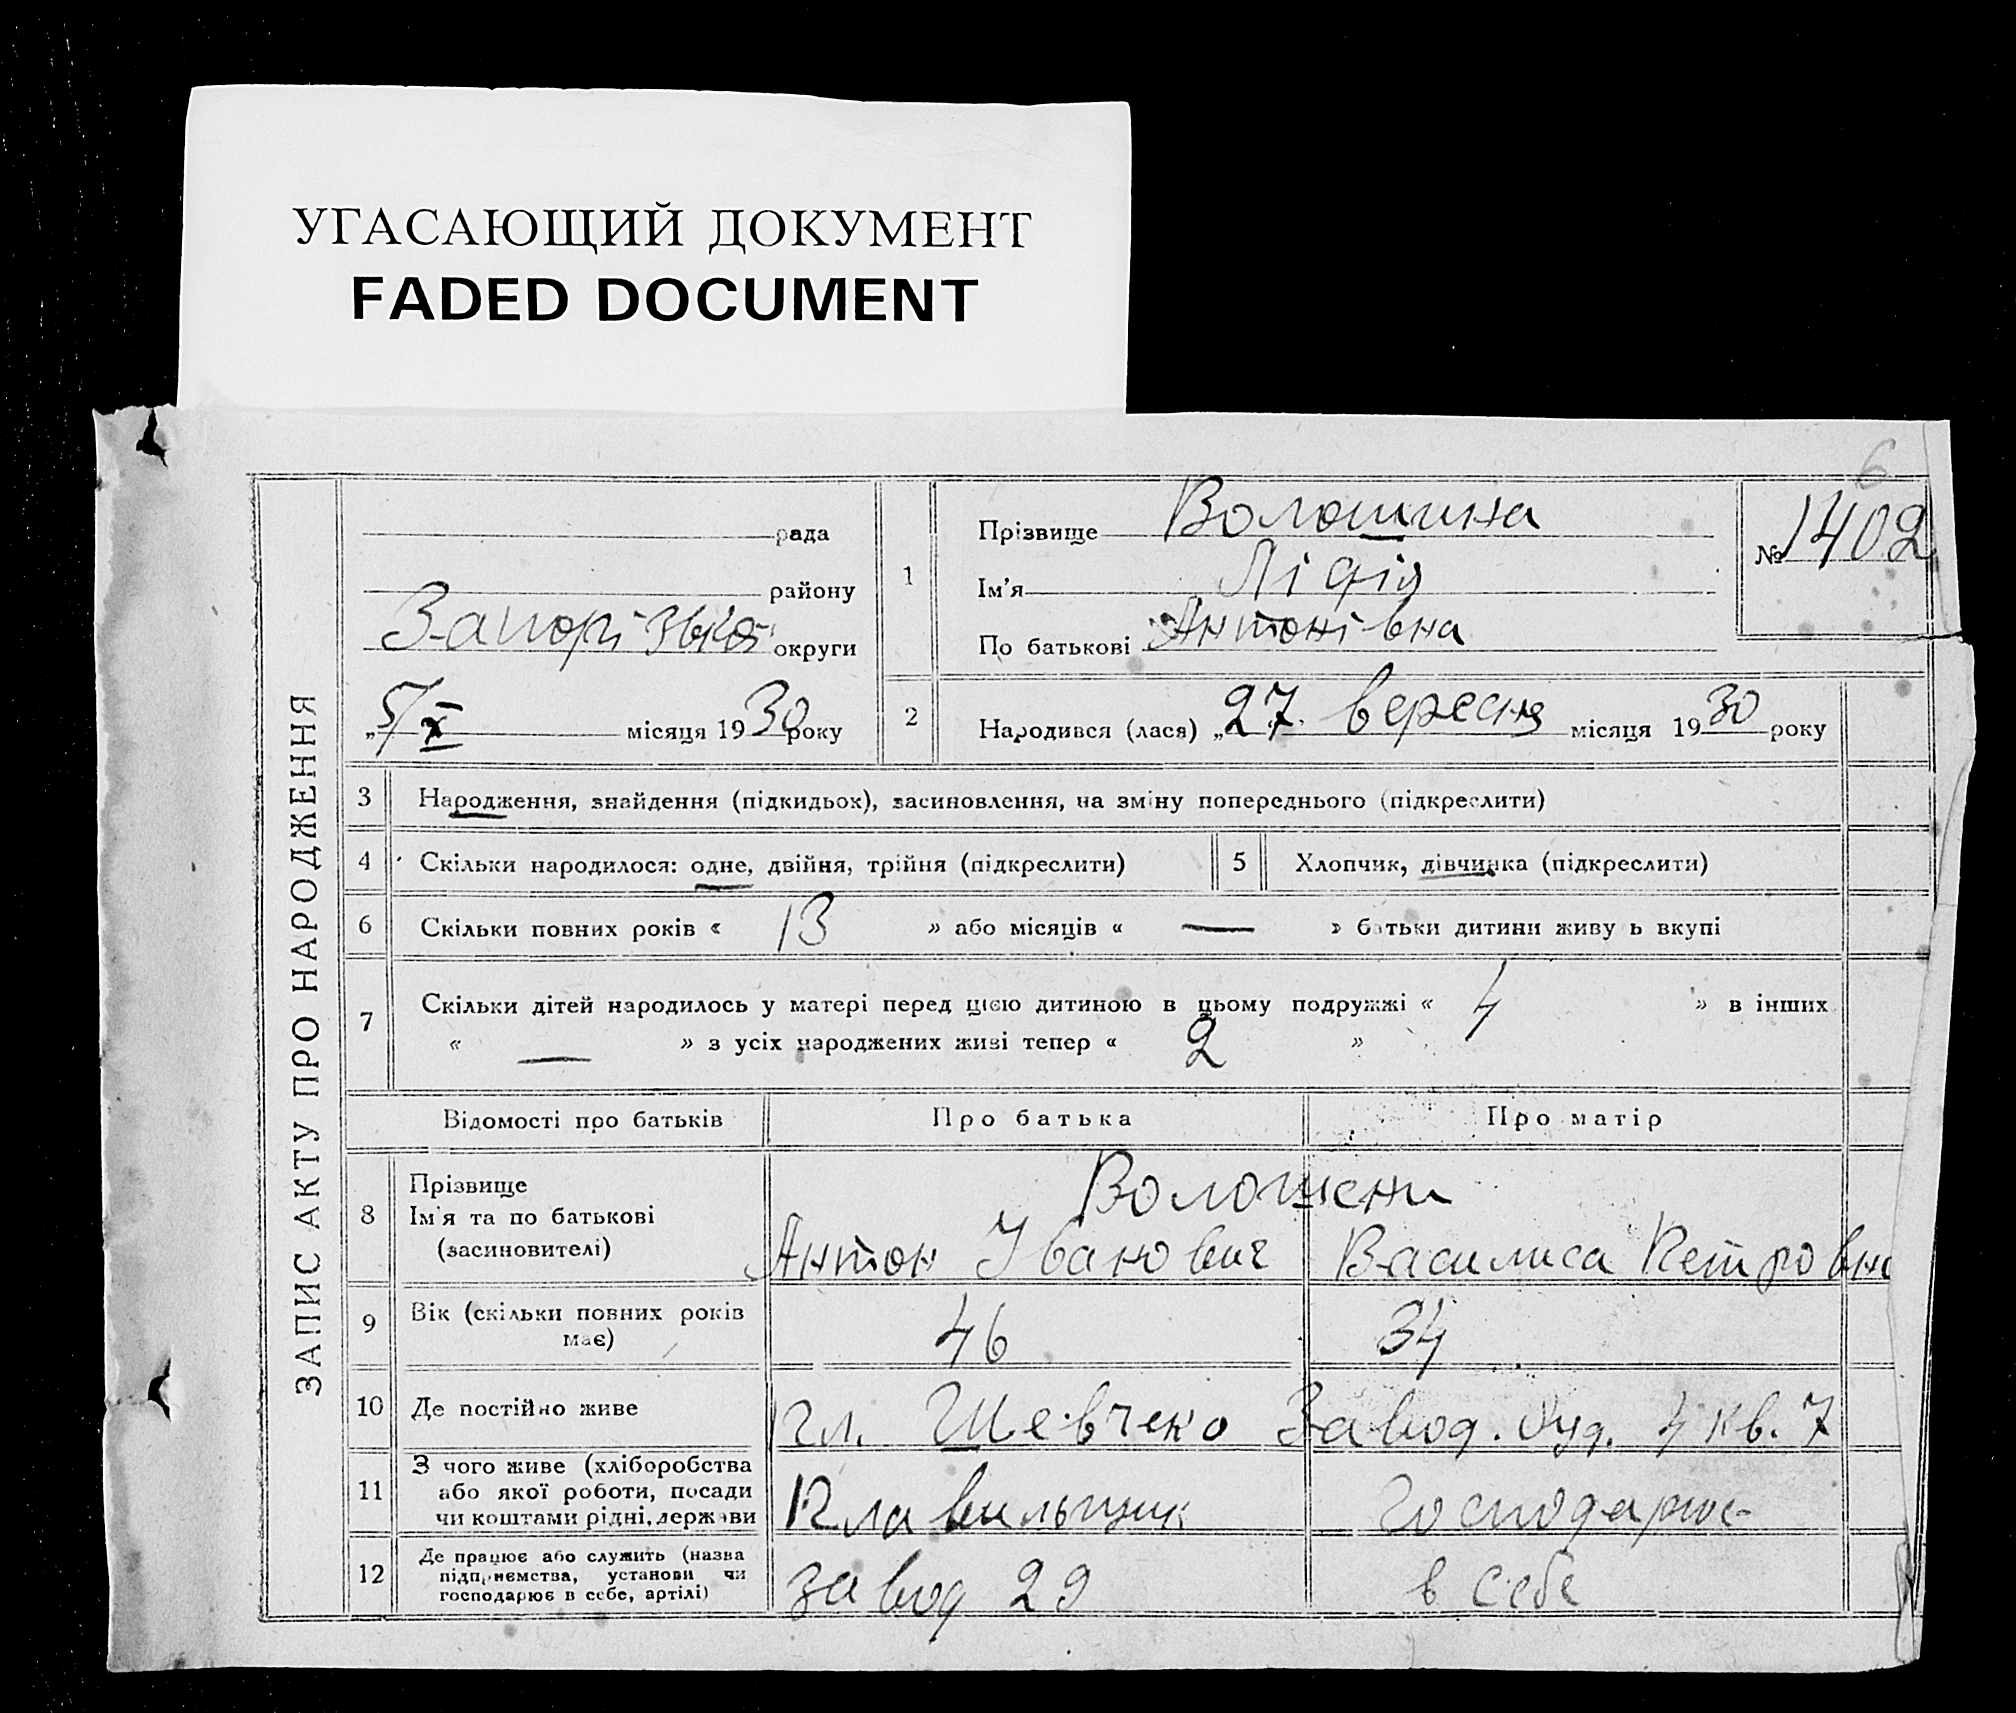 УГАСАЮЩИЙ ДОКУМЕНТ
FADED DOCUMENT
6
ЗАПИС АКТУ ПРО НАРОДЖЕННЯ
рада
району
Запорізька округи
„5/X місяця 1930 року
1
Прізвище Волошина
Ім'я Лідія
По батькові Антонівна
№ 1402
2 Народився (лася) „27 вересня місяця 1930 року
3 Народження, знайдення (підкидьок), засиновлення, на зміну попереднього (підкреслити)
4 Скільки народилося: одне, двійня, трійня (підкреслити) 5 Хлопчик, дівчинка (підкреслити)
6 Скільки повних років « 13 » або місяців « — » батьки дитини живуть вкупі
7 Скільки дітей народилось у матері перед цією дитиною в цьому подружжі « 4 » в інших
« — » з усіх народжених живі тепер « 2 »
Відомості про батьків Про батька Про матір
8 Прізвище
Ім'я та по батькові
(засиновителі)
Волошени
Антон Іванович Василиса Петровна
9 Вік (скільки повних років
має)
46 34
10 Де постійно живе Пл. Шевчеко Завод. буд. 4 кв. 7
11 З чого живе (хліборобства
або якої роботи, посади
чи коштами рідні, держави
Плавильщик
12 Де працює або служить (назва
підприємства, установи чи
господарює в себе, артілі)
завод 29 в себе